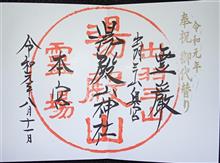 令和元年
奉祝 御代替り
出羽三山奥宮
湯殿山神社
本宮
湯殿山
霊場
令和元年八月十一日